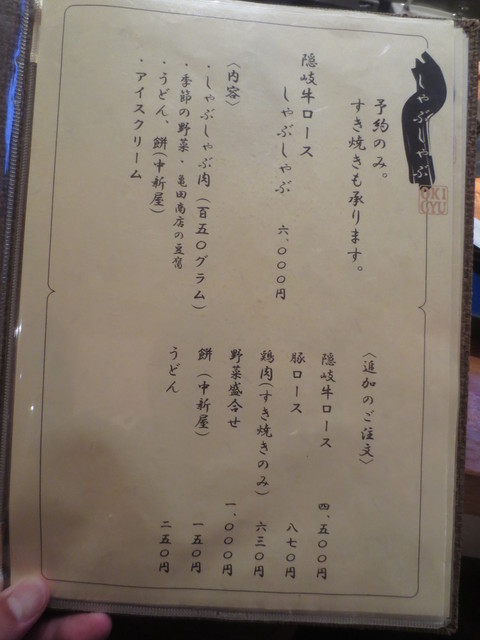 しゃぶしゃぶ
OKI
GYU
予約のみ。
すき焼きも承ります。
隠岐牛ロース
しゃぶしゃぶ 六、〇〇〇円
〈内容〉
・しゃぶしゃぶ肉(百五〇グラム)
・季節の野菜・亀田商店の豆腐
・うどん、餅(中新屋)
・アイスクリーム
〈追加のご注文〉
隠岐牛ロース 四、五〇〇円
豚ロース 八七〇円
鶏肉(すき焼きのみ) 六三〇円
野菜盛合せ 一、〇〇〇円
餅(中新屋) 一五〇円
うどん 二五〇円